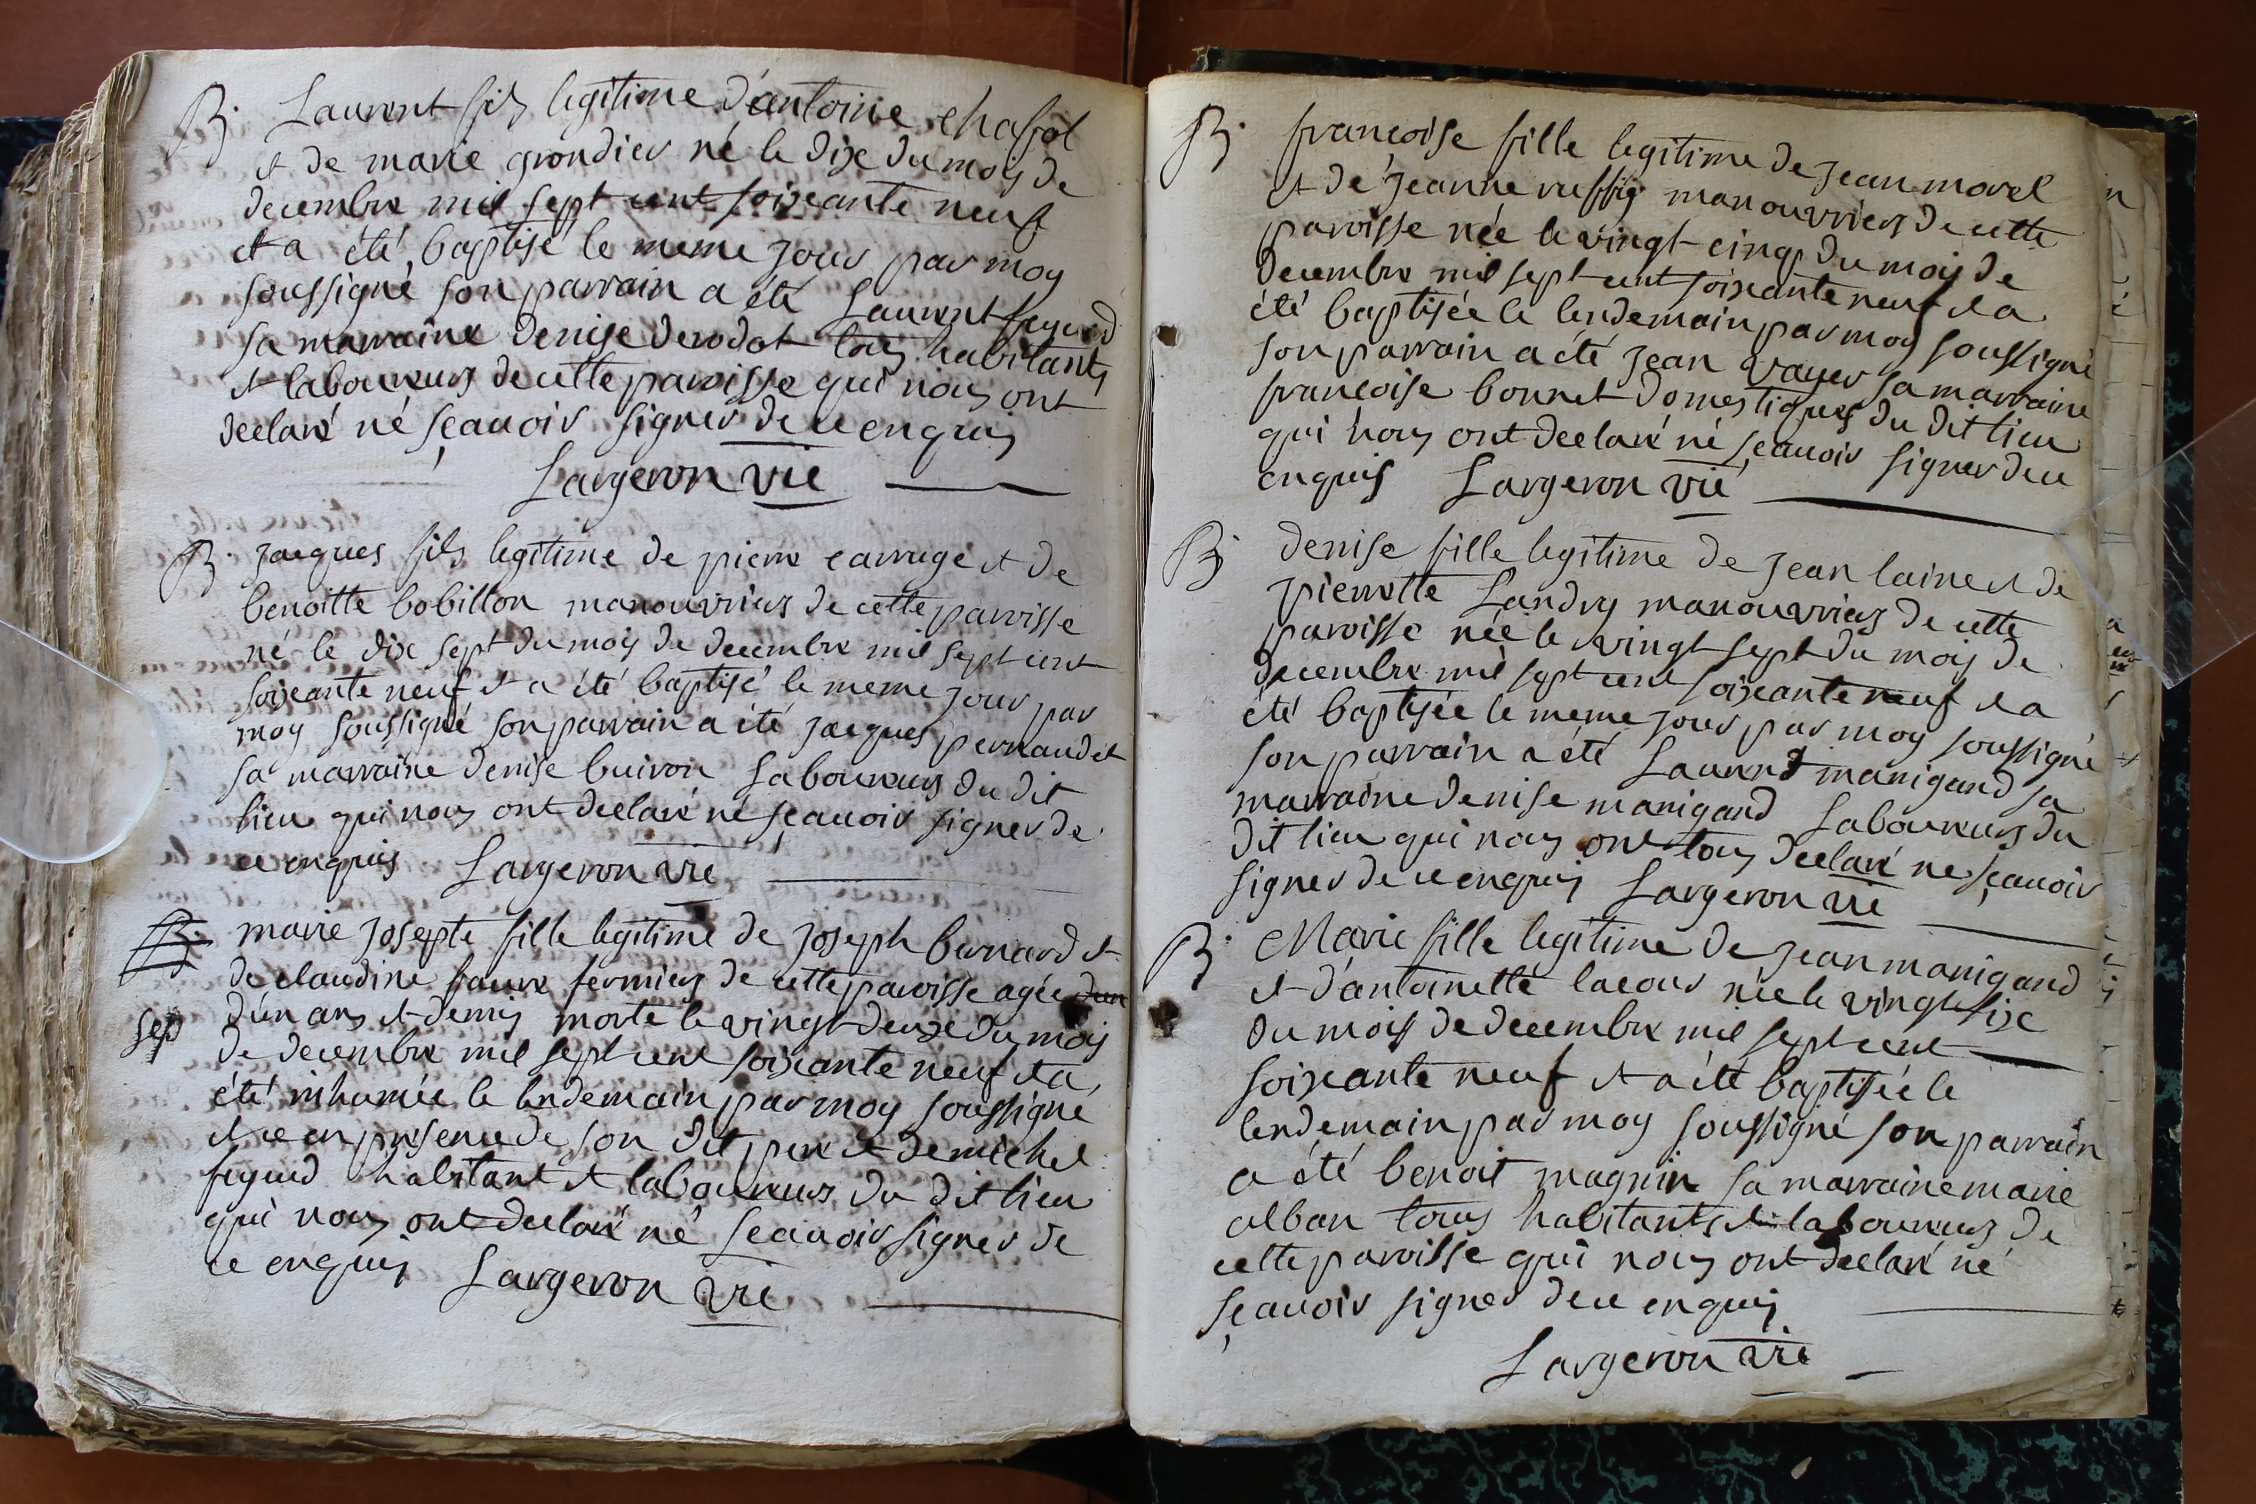 B. Laurent fils legitime d'antoine chassot
et de marie grondier né le dix du mois de
decembre mil sept cent soixante neuf
et a été baptisé le meme jour par moy
soussigné son parrain a été Laurent feguad
sa marraine denise derodot tous habitants
et laboureurs de cette paroisse qui nous ont
declaré né sçauoir signer de ce enquis
Largeron vic
B. jacques fils legitime de pierre carruge et de
benoitte bobillon manouvriers de cette paroisse
né le dix sept du mois de decembre mil sept cent
soixante neuf et a été baptisé le meme jour par
moy soussigné son parrain a été jacques pernaudet
sa marraine denise buiron Laboureurs du dit
lieu qui nous ont declaré né sçauoir signer de
ce enquis Largeron vic
B. marie josepte fille legitime de joseph bernard et
de claudine faure fermiers de cette paroisse agée dun
sep d'un ans et demis morte le vingt deuxe du mois
de decembre mil sept cent soixante neuf et a
été inhumée le lendemain par moy soussigné
et ce en presence de son dit pere et de michel
feguad habitant et laboureurs du dit lieu
qui nous ont declaré né sçauoir signer de
ce enquis Largeron vic
B. francoise fille legitime de jean morel
et de jeanne manouvriers de cette
paroisse née le vingt cinq du mois de
decembre mil sept cent soixante neuf et a
été baptisée le lendemain par moy soussigné
son parrain a été jean vayer sa marraine
francoise bonnet domestiques du dit lieu
qui nous ont declaré né sçauoir signer de ce
enquis Largeron vic
B. denise fille legitime de jean laine et de
pierrette Landry manouvriers de cette
paroisse née le vingt sept du mois de
decembre mil sept cent soixante neuf et a
été baptisée le meme jour par moy soussigné
son parrain a été Laurent manigand sa
marraine denise manigand Laboureurs du
dit lieu qui nous ont tous declaré ne sçauoir
signer de ce enquis Largeron vic
B. Marie fille legitime de jean manigand
et d'antoinette lacour née le vingt six
du mois de decembre mil sept cent
soixante neuf et a été baptisée le
lendemain par moy soussigné son parrain
a été benoit magnin sa marraine marie
alban tous habitants et laboureurs de
cette paroisse qui nous ont declaré né
sçauoir signer de ce enquis
Largeron vic